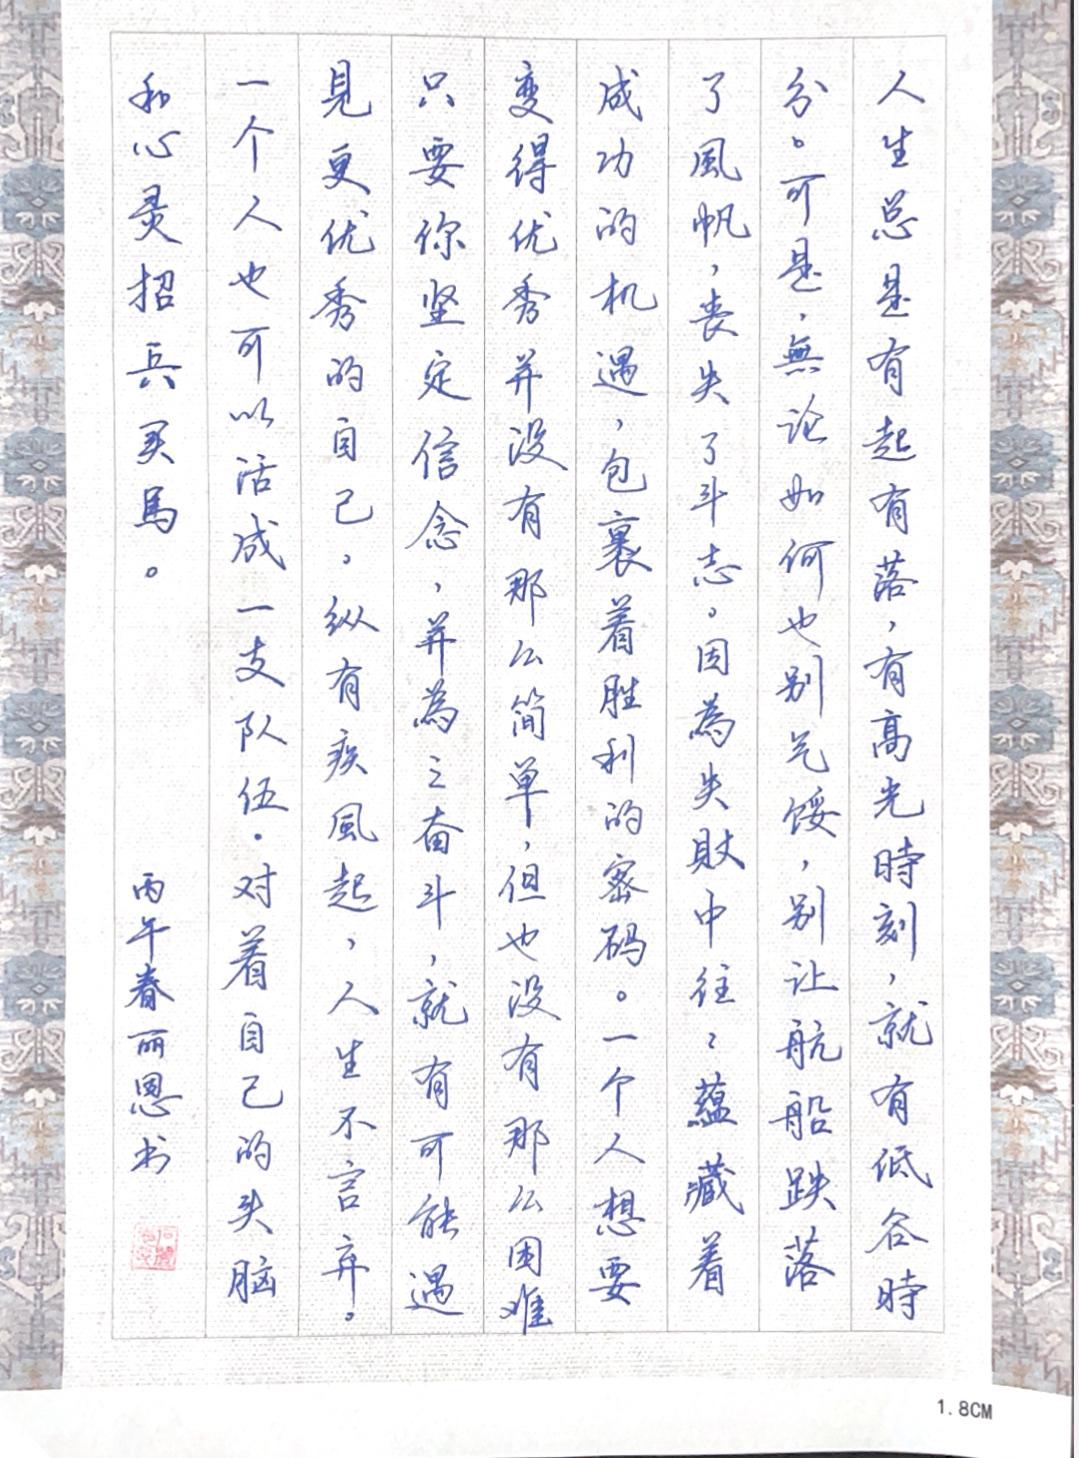 人生总是有起有落，有高光時刻，就有低谷時
分。可是，無论如何也别气馁，别让航船跌落
了風帆，丧失了斗志。因為失敗中往々蕴藏着
成功的机遇，包裹着胜利的密码。一个人想要
变得优秀并没有那么简单，但也没有那么困难
只要你坚定信念，并為之奋斗，就有可能遇
見更优秀的自己，纵有疾風起，人生不言弃。
一个人也可以活成一支队伍。对着自己的头脑
和心灵招兵买馬。
丙午春丽恩书
1.8CM